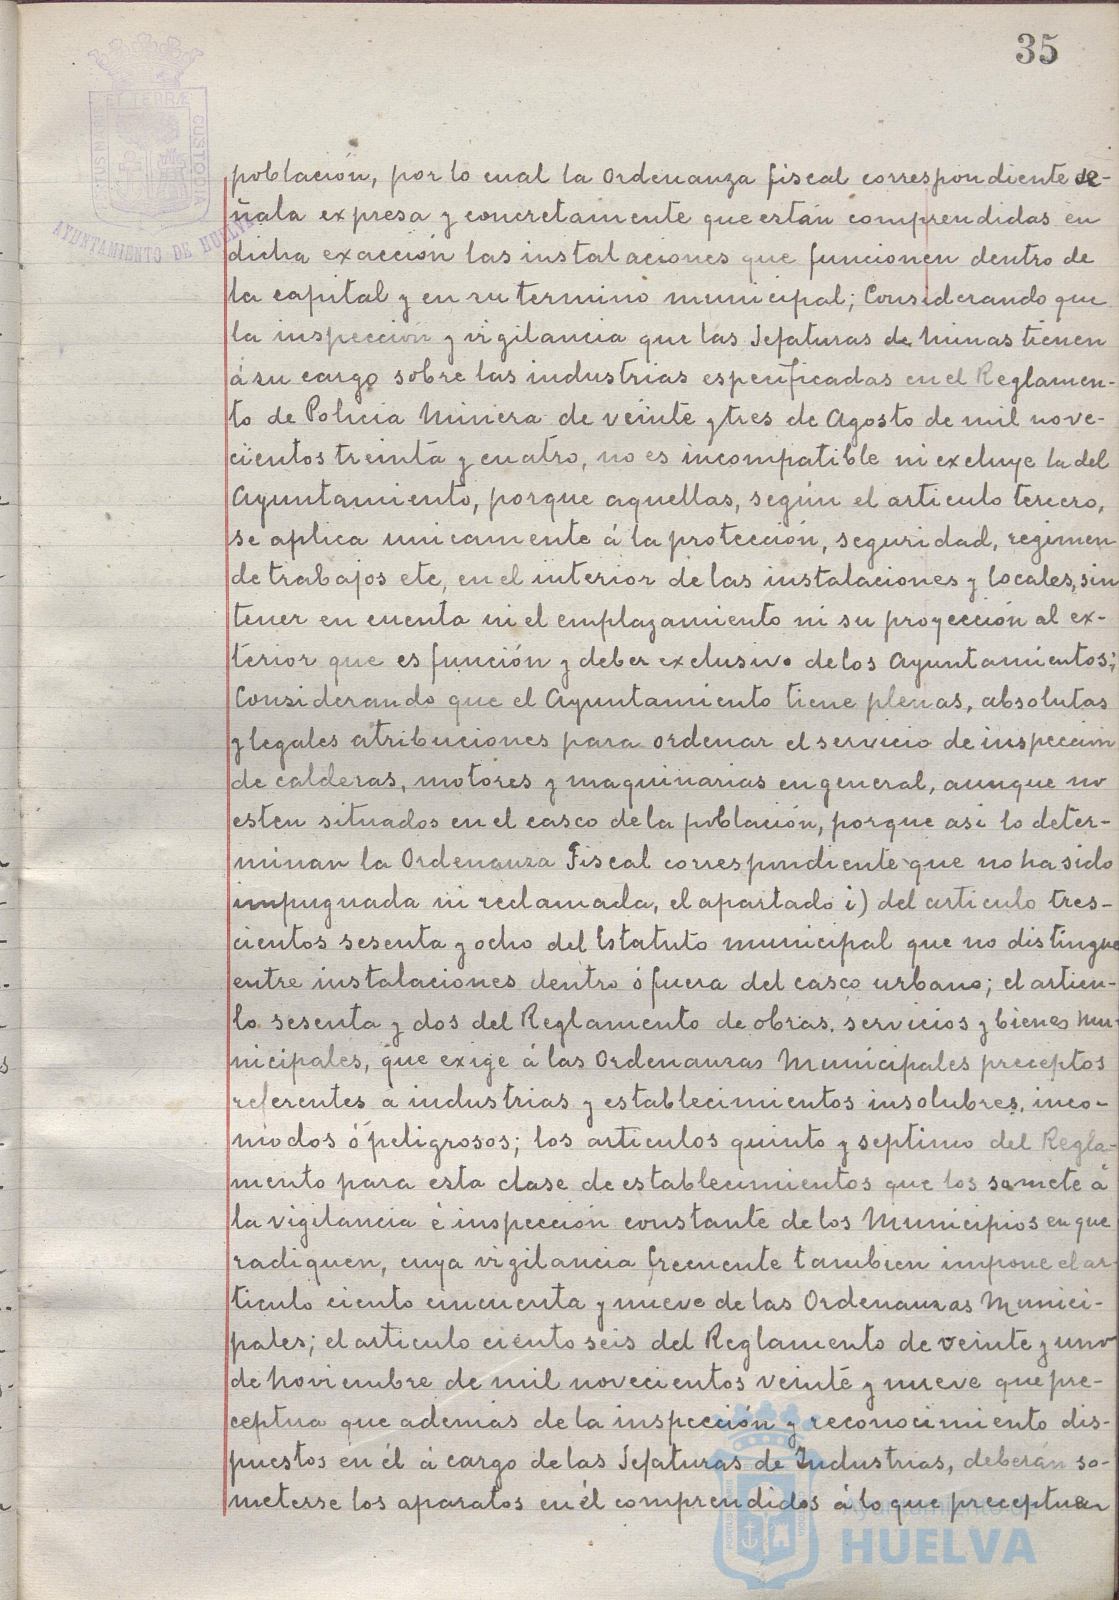 35
PORTUS MARIS ET TERRÆ CUSTODIA
AYUNTAMIENTO DE HUELVA
población, por lo cual la Ordenanza fiscal correspondiente se-
ñala expresa y concretamente que están comprendidas en
dicha exacción las instalaciones que funcionen dentro de
la capital y en su termino municipal; Considerando que
la inspección y vigilancia que las Jefaturas de Minas tienen
á su cargo sobre las industrias especificadas en el Reglamen-
to de Policia Minera de veinte y tres de Agosto de mil nove-
cientos treinta y cuatro, no es incompatible ni excluye la del
Ayuntamiento, porque aquellas, según el articulo tercero,
se aplica unicamente á la protección, seguridad, regimen
de trabajos etc, en el interior de las instalaciones y locales, sin
tener en cuenta ni el emplazamiento ni su proyección al ex-
terior que es función y deber exclusivo de los Ayuntamientos;
Considerando que el Ayuntamiento tiene plenas, absolutas
y legales atribuciones para ordenar el servicio de inspección
de calderas, motores y maquinarias en general, aunque no
esten situados en el casco de la población, porque asi lo deter-
minan la Ordenanza Fiscal correspondiente que no ha sido
impugnada ni reclamada, el apartado i) del articulo tres-
cientos sesenta y ocho del Estatuto municipal que no distingue
entre instalaciones dentro ó fuera del casco urbano; el articu-
lo sesenta y dos del Reglamento de obras, servicios y bienes Mu-
nicipales, que exige á las Ordenanzas Municipales preceptos
referentes a industrias y establecimientos insolubres, inco-
modos ó peligrosos; los articulos quinto y septimo del Regla-
mento para esta clase de establecimientos que los somete á
la vigilancia é inspección constante de los Municipios en que
radiquen, cuya vigilancia frecuente tambien impone el ar-
ticulo ciento cincuenta y nueve de las Ordenanzas Munici-
pales; el articulo ciento seis del Reglamento de veinte y uno
de Noviembre de mil novecientos veinte y nueve que pre-
ceptua que además de la inspección y reconocimiento dis-
puestos en él á cargo de las Jefaturas de Industrias, deberán so-
meterse los aparatos en él comprendidos á lo que preceptuan
Ayuntamiento de
HUELVA